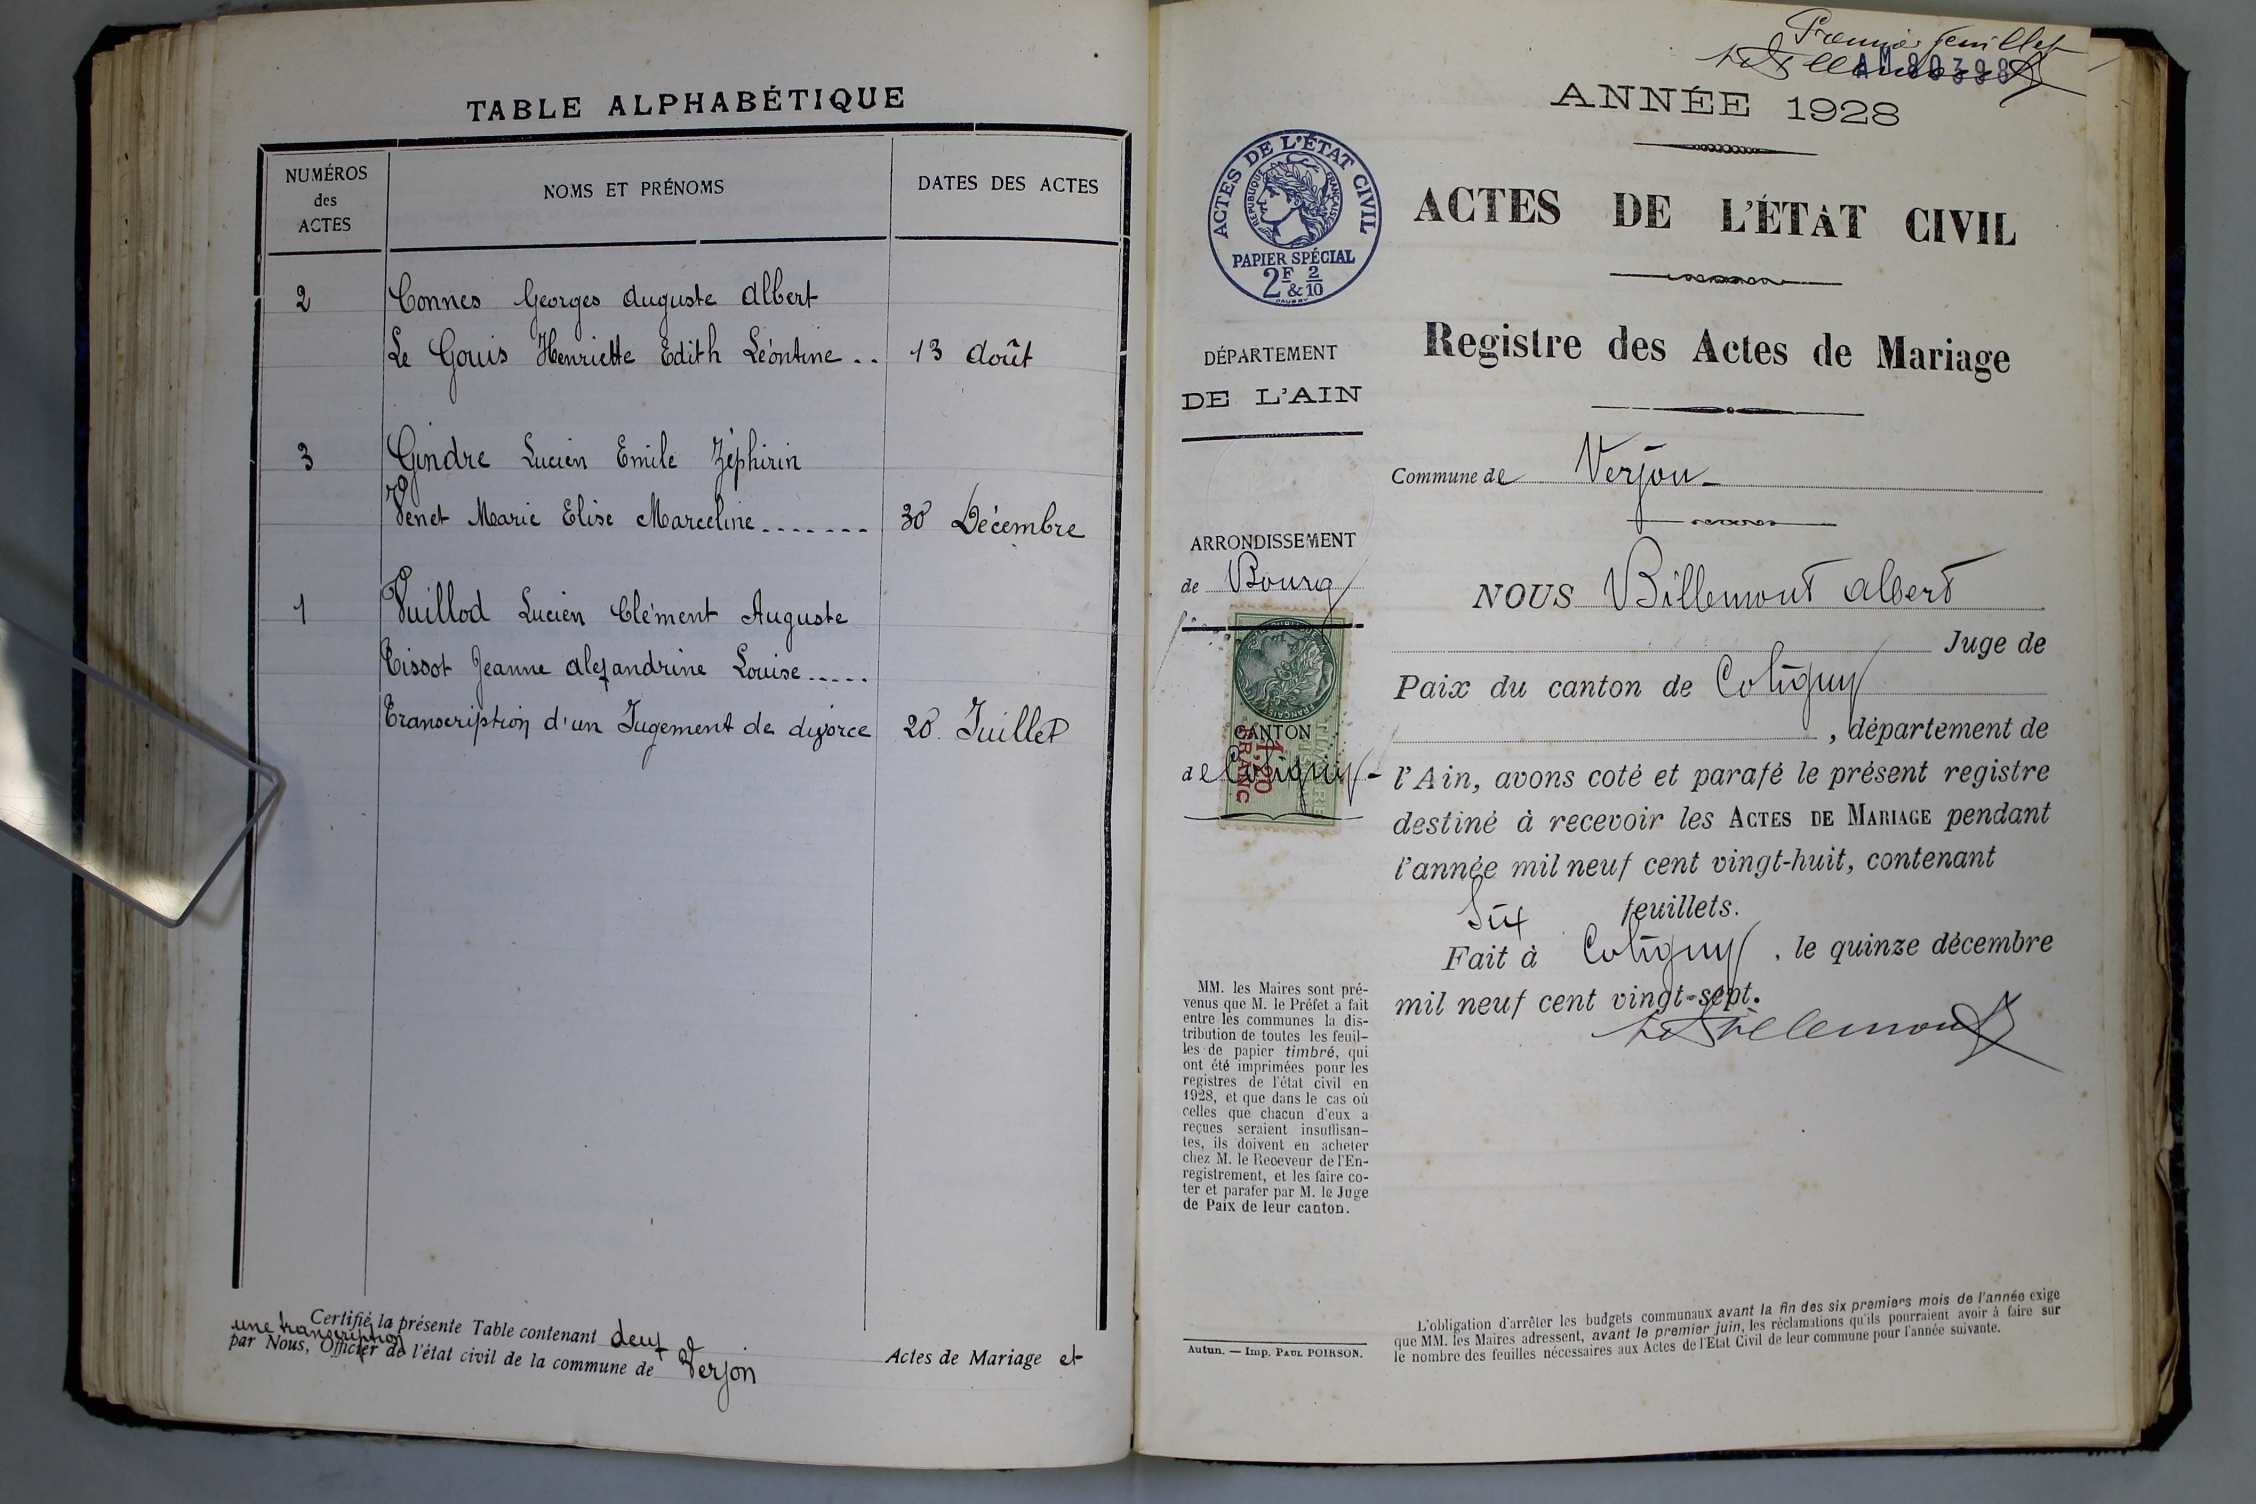 TABLE ALPHABÉTIQUE
NUMÉROS
des
ACTES
NOMS ET PRÉNOMS
DATES DES ACTES
2 Connes Georges Auguste Albert
Le Gouis Henriette Edith Léontine .. 13 Août
3 Gindre Lucien Emile Zéphirin
Venet Marie Elise Marceline ....... 30 Décembre
1 Vuillod Lucien Clément Auguste
Tissot Jeanne Alexandrine Louise .....
Transcription d'un Jugement de divorce 20 Juillet
Certifié la présente Table contenant deux Actes de Mariage et
une transcription
par Nous, Officier de l'état civil de la commune de Verjon
Premier feuillet
ANNÉE 1928
ACTES DE L'ÉTAT CIVIL
RÉPUBLIQUE FRANÇAISE
PAPIER SPÉCIAL
2F & 2/10
ACTES DE L'ÉTAT CIVIL
Registre des Actes de Mariage
DÉPARTEMENT
DE L'AIN
Commune de Verjon
ARRONDISSEMENT
de Bourg
CANTON
de Coligny
1.20
FRANC
NOUS Billemont Albert
Juge de
Paix du canton de Coligny
, département de
l'Ain, avons coté et parafé le présent registre
destiné à recevoir les ACTES DE MARIAGE pendant
l'année mil neuf cent vingt-huit, contenant
Six feuillets.
Fait à Coligny, le quinze décembre
mil neuf cent vingt-sept.
ABillemont
MM. les Maires sont pré-
venus que M. le Préfet a fait
entre les communes la dis-
tribution de toutes les feuil-
les de papier timbré, qui
ont été imprimées pour les
registres de l'état civil en
1928, et que dans le cas où
celles que chacun d'eux a
reçues seraient insuffisan-
tes, ils doivent en acheter
chez M. le Receveur de l'En-
registrement, et les faire co-
ter et parafer par M. le Juge
de Paix de leur canton.
Autun. — Imp. PAUL POIRSON.
L'obligation d'arrêter les budgets communaux avant la fin des six premiers mois de l'année exige
que MM. les Maires adressent, avant le premier juin, les réclamations qu'ils pourraient avoir à faire sur
le nombre des feuilles nécessaires aux Actes de l'Etat Civil de leur commune pour l'année suivante.